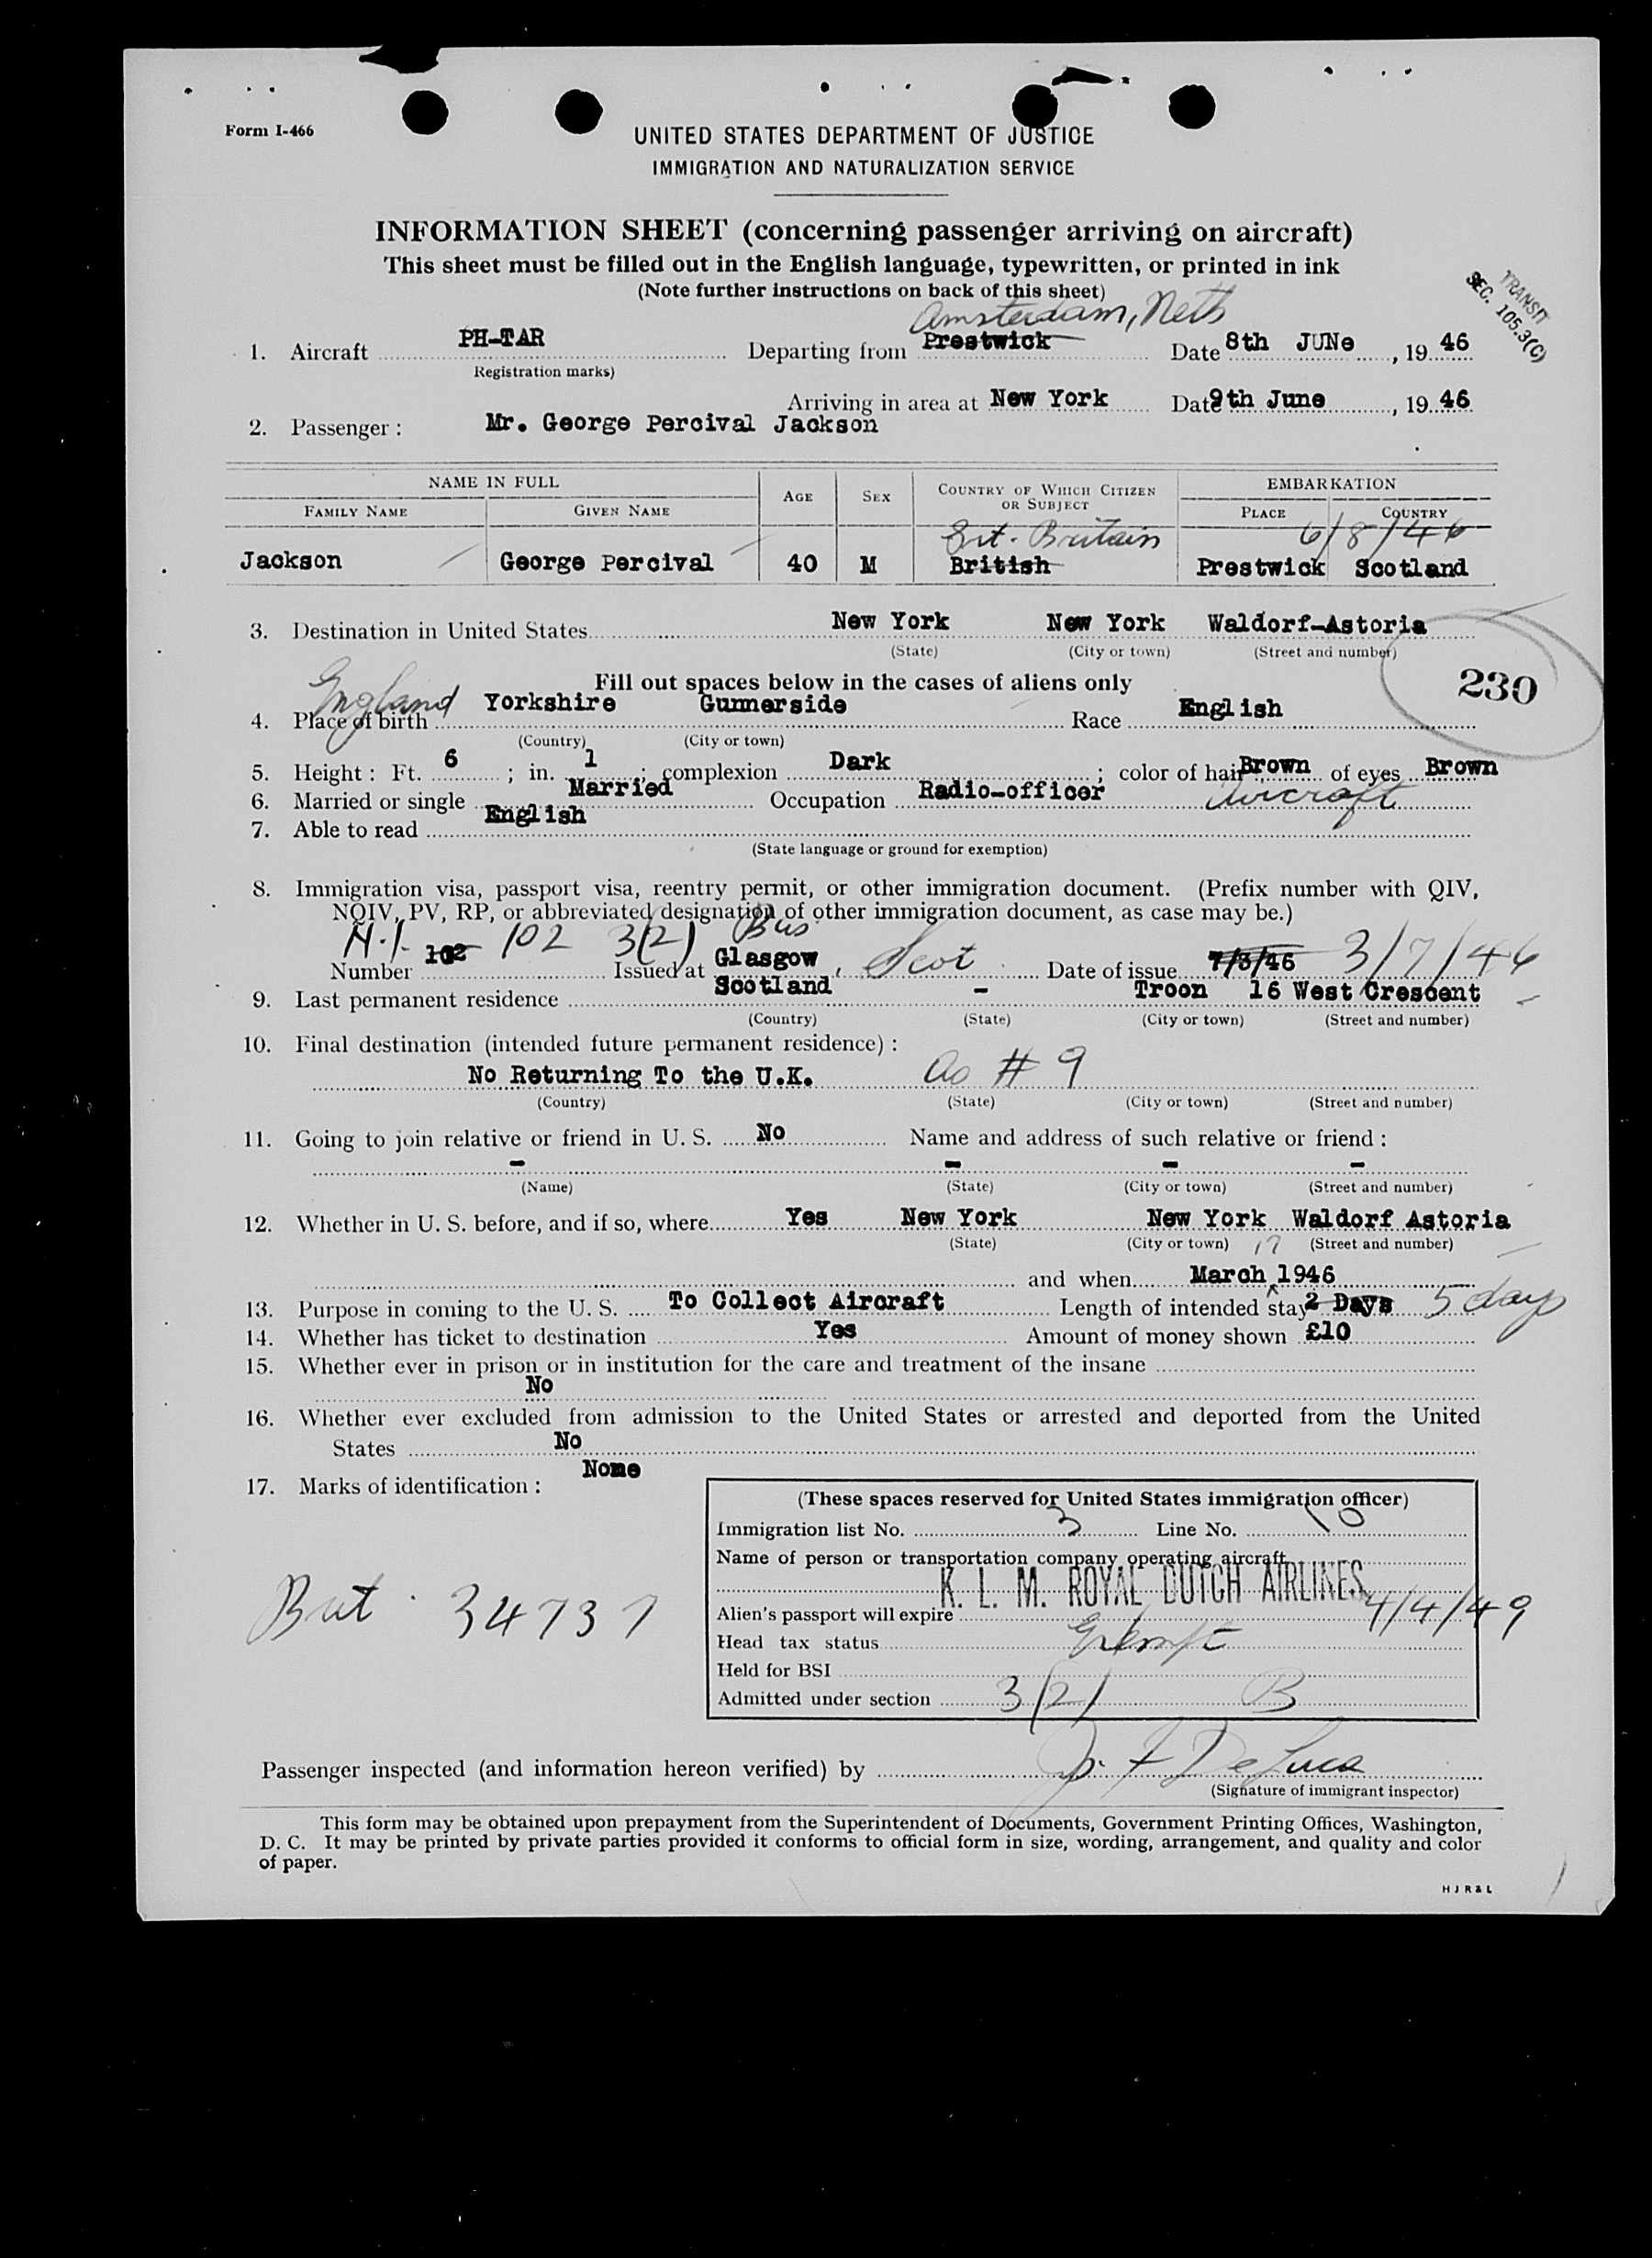 Form I-466
UNITED STATES DEPARTMENT OF JUSTICE
IMMIGRATION AND NATURALIZATION SERVICE
INFORMATION SHEET (concerning passenger arriving on aircraft)
This sheet must be filled out in the English language, typewritten, or printed in ink
(Note further instructions on back of this sheet)
TRANSIT
SEC. 105.3(C)
Amsterdam, Neth
1. Aircraft PH-TAR Departing from Prestwick Date 8th JUNe, 19 46
Registration marks)
Arriving in area at New York Date 9th June, 19 46
2. Passenger : Mr. George Percival Jackson
NAME IN FULL AGE SEX COUNTRY OF WHICH CITIZEN OR SUBJECT EMBARKATION
FAMILY NAME GIVEN NAME PLACE COUNTRY
Grt. Britain 6/8/46
Jackson George Percival 40 M British Prestwick Scotland
3. Destination in United States New York New York Waldorf-Astoria
(State) (City or town) (Street and number)
230
Fill out spaces below in the cases of aliens only
England
4. Place of birth Yorkshire Gunnerside Race English
(Country) (City or town)
5. Height : Ft. 6 ; in. 1 ; complexion Dark ; color of hair Brown of eyes Brown
6. Married or single Married Occupation Radio-officer Aircraft
7. Able to read English
(State language or ground for exemption)
8. Immigration visa, passport visa, reentry permit, or other immigration document. (Prefix number with QIV,
NQIV, PV, RP, or abbreviated designation of other immigration document, as case may be.)
N.I. 102 102 3(2) Bus.
Number Issued at Glasgow, Scot Date of issue 7/3/46 3/7/46
9. Last permanent residence Scotland - Troon 16 West Crescent
(Country) (State) (City or town) (Street and number)
10. Final destination (intended future permanent residence) :
No Returning To the U.K. as # 9
(Country) (State) (City or town) (Street and number)
11. Going to join relative or friend in U. S. No Name and address of such relative or friend :
- - - -
(Name) (State) (City or town) (Street and number)
12. Whether in U. S. before, and if so, where Yes New York New York Waldorf Astoria
(State) (City or town) (Street and number)
17
and when March 1946
13. Purpose in coming to the U. S. To Collect Aircraft Length of intended stay 2 Days 5 days
14. Whether has ticket to destination Yes Amount of money shown £10
15. Whether ever in prison or in institution for the care and treatment of the insane
No
16. Whether ever excluded from admission to the United States or arrested and deported from the United
States No
17. Marks of identification : None
(These spaces reserved for United States immigration officer)
Immigration list No. 3 Line No. 10
Name of person or transportation company operating aircraft
K. L. M. ROYAL DUTCH AIRLINES
Alien's passport will expire 4/4/49
Head tax status Exempt
Held for BSI
Admitted under section 3(2) B
Brit. 34737
Passenger inspected (and information hereon verified) by J. F DeLuca
(Signature of immigrant inspector)
This form may be obtained upon prepayment from the Superintendent of Documents, Government Printing Offices, Washington,
D. C. It may be printed by private parties provided it conforms to official form in size, wording, arrangement, and quality and color
of paper.
H J R & L